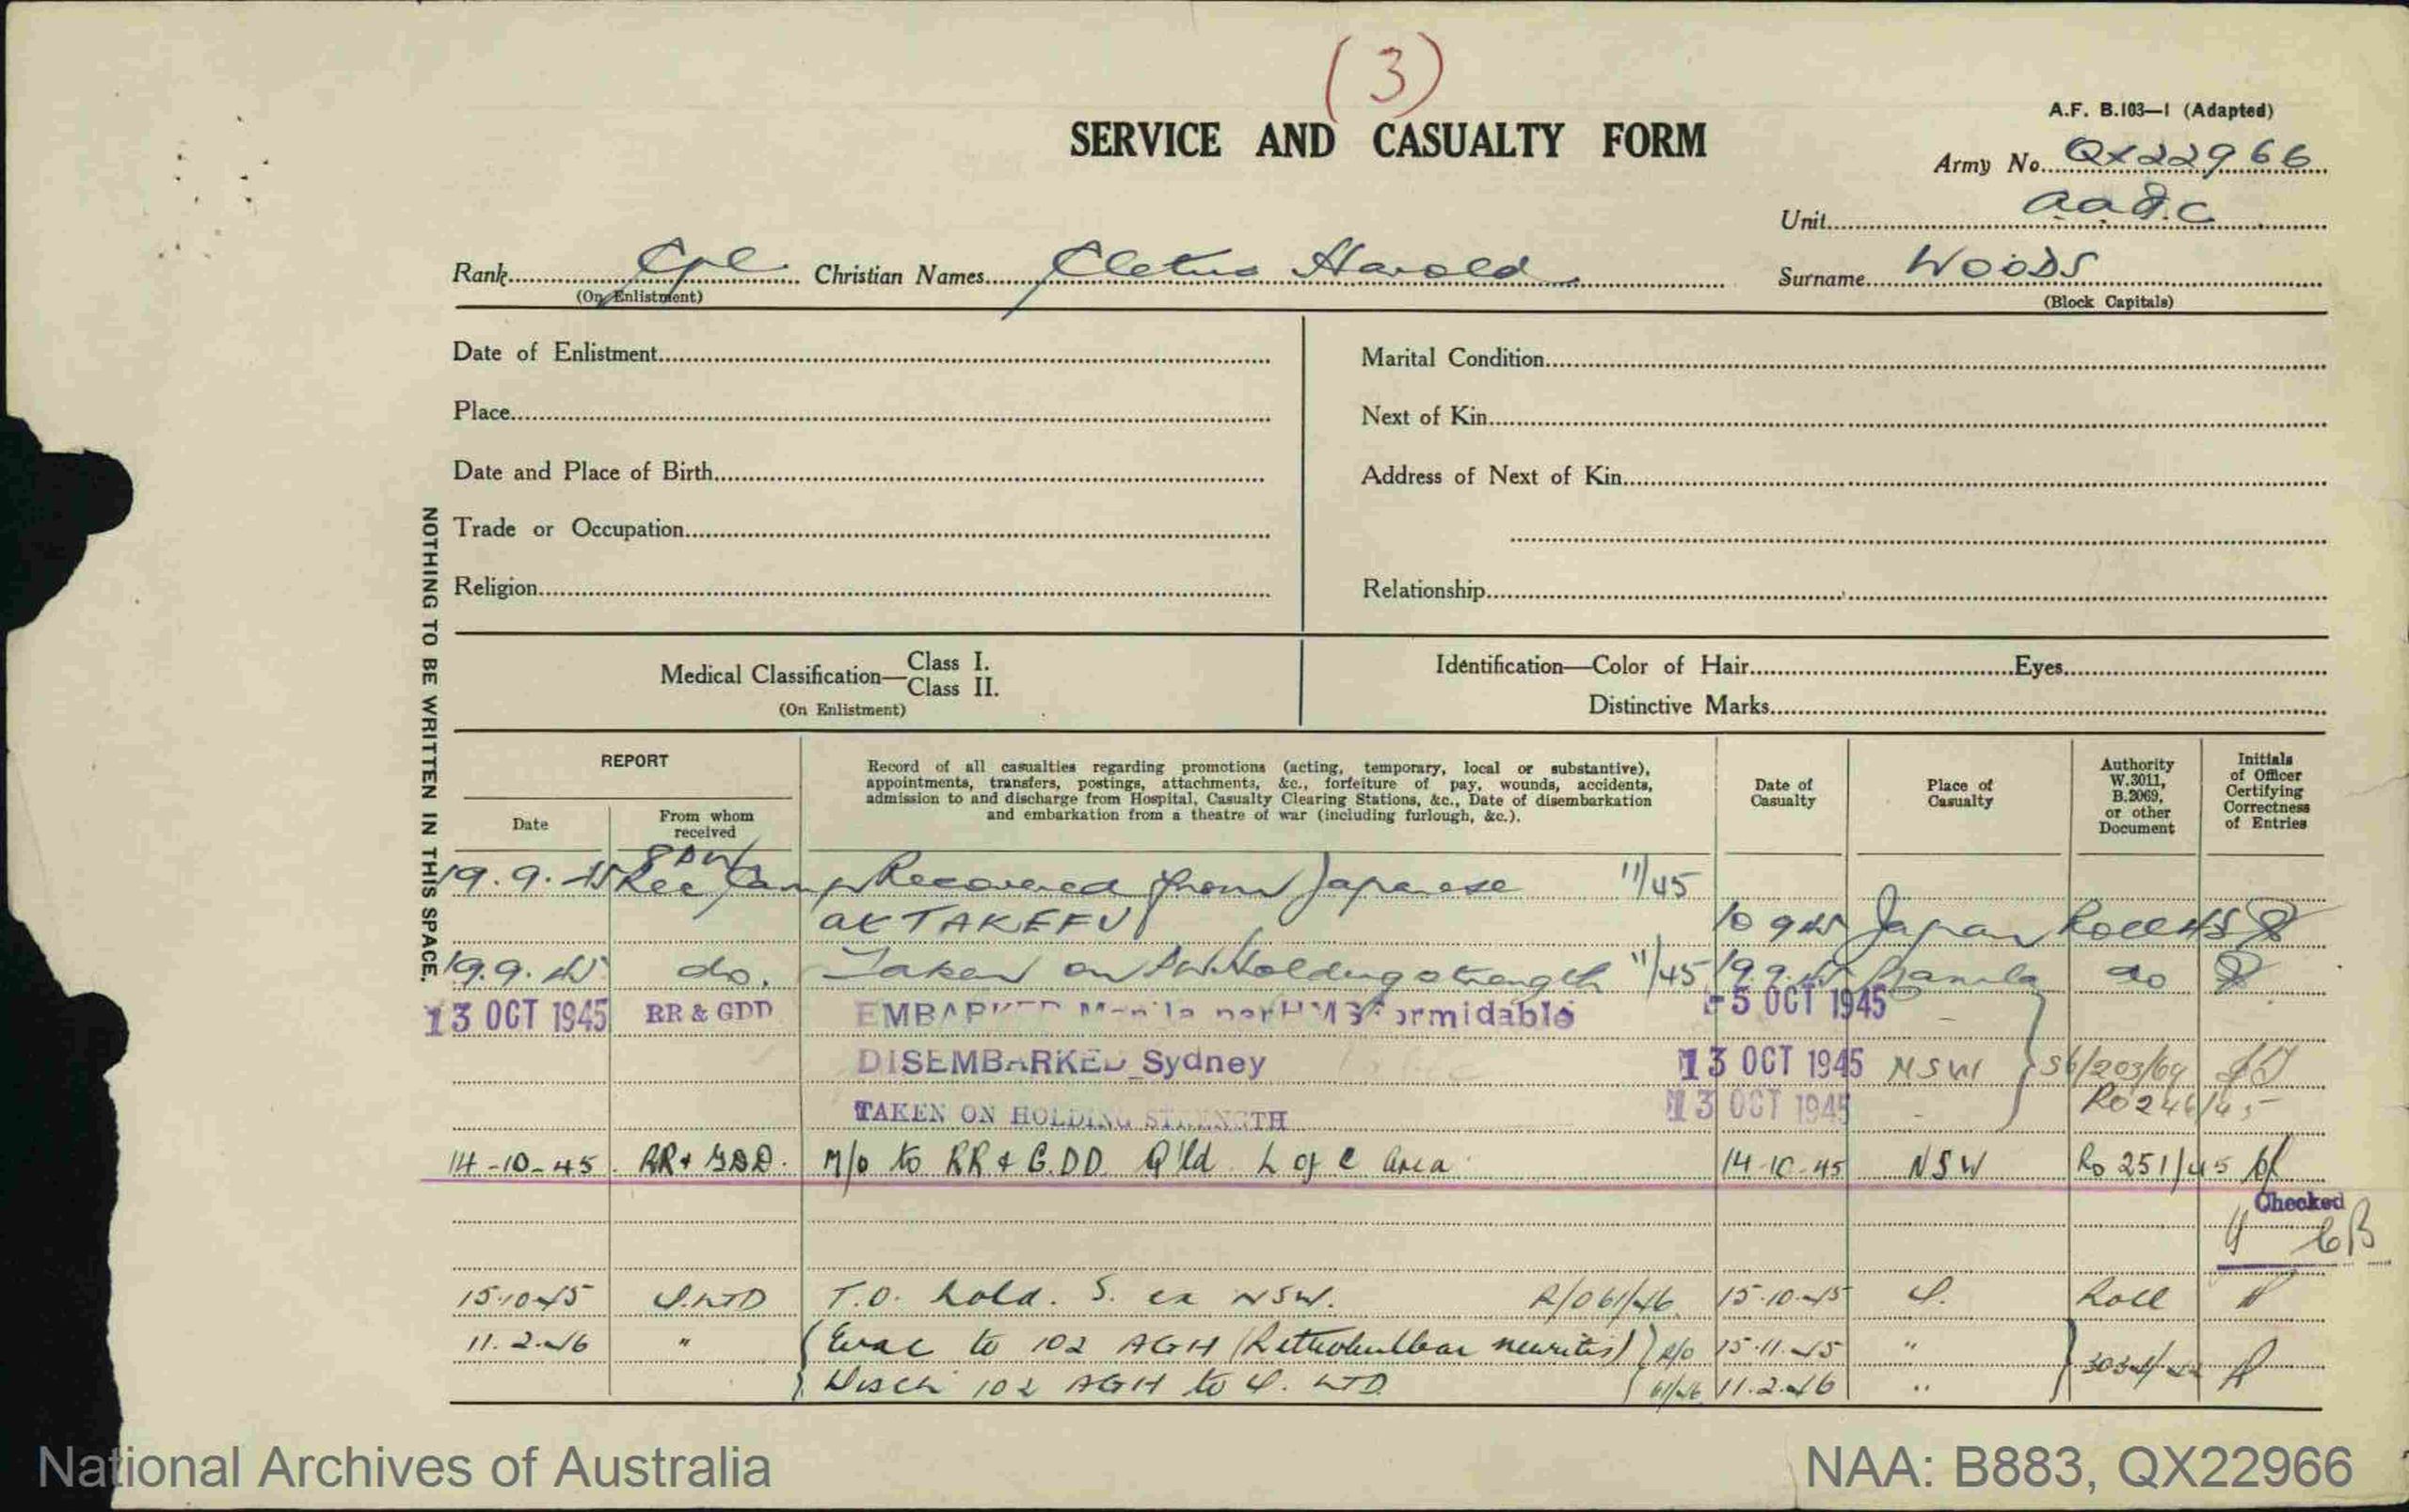 (3)
SERVICE AND CASUALTY FORM
A.F. B.103—1 (Adapted)
Army No. QX22966
Unit
Rank Cpl Christian Names Cletus Harold Surname WOODS
(On Enlistment) (Block Capitals)
Date of Enlistment Marital Condition
Place Next of Kin
Date and Place of Birth Address of Next of Kin
Trade or Occupation
Religion Relationship
Medical Classification— Class I.
Class II.
(On Enlistment)
Identification—Color of Hair Eyes
Distinctive Marks
NOTHING TO BE WRITTEN IN THIS SPACE.
REPORT
Date
From whom received
Record of all casualties regarding promotions (acting, temporary, local or substantive),
appointments, transfers, postings, attachments, &c., forfeiture of pay, wounds, accidents,
admission to and discharge from Hospital, Casualty Clearing Stations, &c., Date of disembarkation
and embarkation from a theatre of war (including furlough, &c.).
Date of Casualty
Place of Casualty
Authority W.3011, B.2069, or other Document
Initials of Officer Certifying Correctness of Entries
19.9.45 Rec Camp Recovered from Japanese 11/45
at TAKEFU 10 9 45 Japan Roll 45
19.9.45 do. Taken on Holding strength 11/45 19.9.45 Manila do
13 OCT 1945 RR & GDD EMBARKED Manila per HMS Formidable -5 OCT 1945
DISEMBARKED Sydney 13 OCT 1945 NSW S6/203/69
TAKEN ON HOLDING STRENGTH 13 OCT 1945 - RO 246/45
14-10-45 RR & GDD. M/o to RR & G.DD Q'ld L of C Area 14-10-45 NSW Ro 251/45
Checked
CB
15.10.45 Q.LTD T.O. hold. S. ex NSW. R/O 61/46 15.10.45 Q. Roll
11.2.46 " Evac to 102 AGH (Retrobulbar neuritis) R/O 15.11.45 "
Disch 102 AGH to Q. LTD 61/46 11.2.46 "
National Archives of Australia
NAA: B883, QX22966